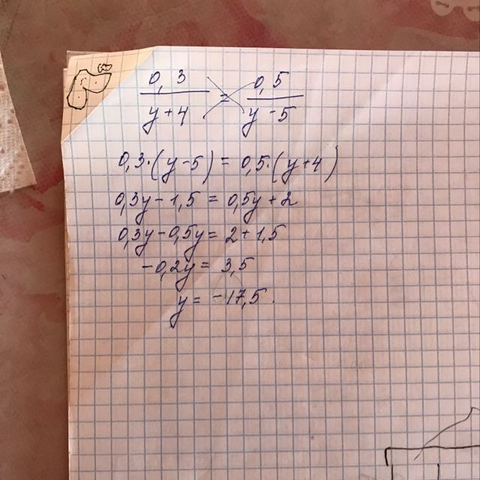 0,3/(y+4) = 0,5/(y-5)
0,3·(y-5) = 0,5·(y+4)
0,3y-1,5 = 0,5y+2
0,3y-0,5y = 2+1,5
-0,2y = 3,5
y = -17,5.